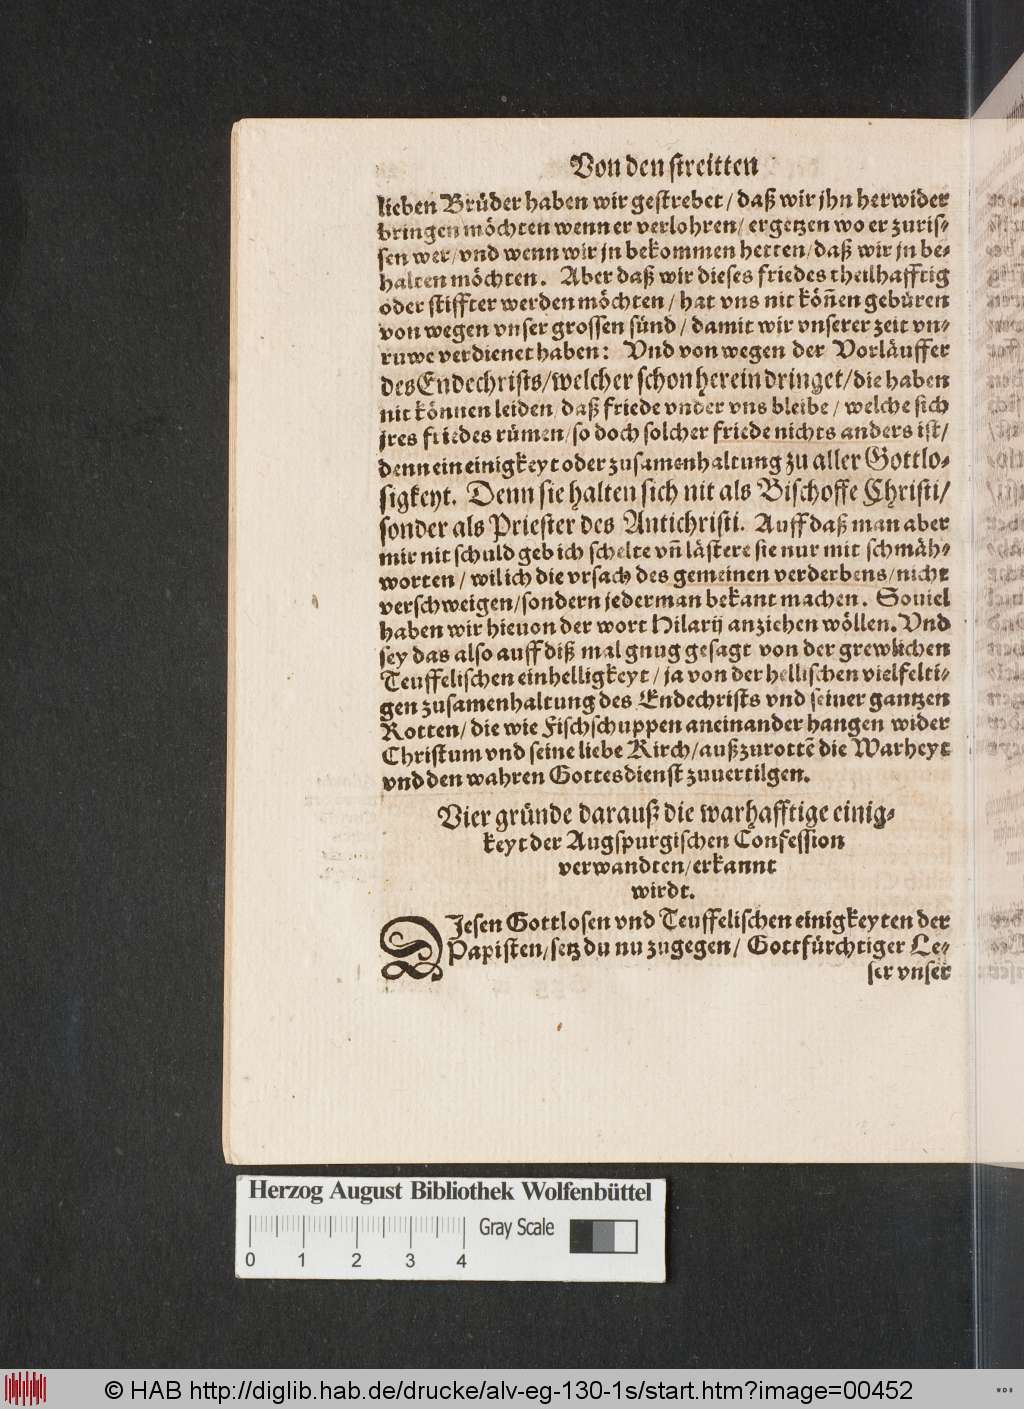 Von den streitten
lieben Brüder haben wir gestrebet / daß wir jhn herwider
bringen möchten wenn er verlohren / ergetzen wo er zuris-
sen wer / vnd wenn wir jn bekommen hetten / daß wir jn be-
halten möchten. Aber daß wir dieses friedes theilhafftig
oder stiffter werden möchten / hat vns nit köñen gebüren
von wegen vnser grossen sünd / damit wir vnserer zeit vn-
ruwe verdienet haben: Vnd von wegen der Vorläuffer
des Endechrists / welcher schon herein dringet / die haben
nit können leiden / daß friede vnder vns bleibe / welche sich
jres friedes rümen / so doch solcher friede nichts anders ist /
denn ein einigkeyt oder zusamenhaltung zu aller Gottlo-
sigkeyt. Denn sie halten sich nit als Bischoffe Christi /
sonder als Priester des Antichristi. Auff daß man aber
mir nit schuld geb ich schelte vñ lästere sie nur mit schmäh-
worten / wil ich die vrsach des gemeinen verderbens / nicht
verschweigen / sondern jederman bekant machen. Souiel
haben wir hieuon der wort Hilarij anziehen wöllen. Vnd
sey das also auff diß mal gnug gesagt von der grewlichen
Teuffelischen einhelligkeyt / ja von der hellischen vielfelti-
gen zusamenhaltung des Endechrists vnd seiner gantzen
Rotten / die wie Fischschuppen aneinander hangen wider
Christum vnd seine liebe Kirch / außzurottẽ die Warheyt
vnd den wahren Gottesdienst zuuertilgen.
Vier gründe darauß die warhafftige einig-
keyt der Augspurgischen Confession
verwandten / erkannt
wirdt.
DJesen Gottlosen vnd Teuffelischen einigkeyten der
Papisten / setz du nu zugegen / Gottfürchtiger Le-
ser vnser
Herzog August Bibliothek Wolfenbüttel
Gray Scale
0 1 2 3 4
© HAB http://diglib.hab.de/drucke/alv-eg-130-1s/start.htm?image=00452